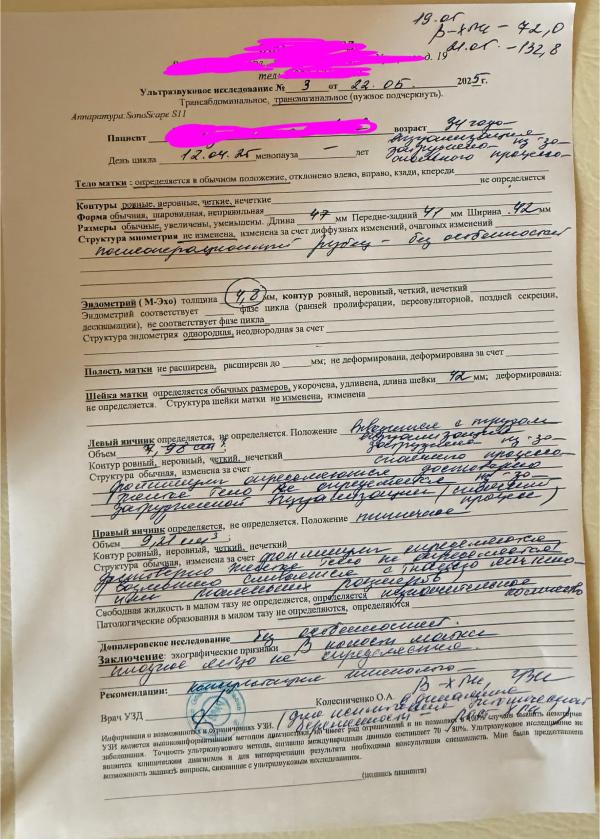 19.05
β-ХГЧ – 72,0
21.05. – 132,8
д. 19
тел.
Ультразвуковое исследование № 3 от 22.05. 2025 г.
Трансабдоминальное, трансвагинальное (нужное подчеркнуть).
Аппаратура: SonoScape S11
Пациент возраст 34 года
День цикла 12.04.25 менопауза – лет
визуализация затруднена из-за спаечного процесса
Тело матки: определяется в обычном положение, отклонено влево, вправо, кзади, кпереди не определяется
Контуры ровные, неровные, четкие, нечеткие
Форма обычная, шаровидная, неправильная
Размеры обычные, увеличены, уменьшены. Длина 47 мм Передне-задний 41 мм Ширина 42 мм
Структура миометрия не изменена, изменена за счет диффузных изменений, очаговых изменений
послеоперационный рубец – без особенностей
Эндометрий (М-Эхо) толщина 4,8 мм, контур ровный, неровный, четкий, нечеткий
Эндометрий соответствует фазе цикла (ранней пролиферации, переовуляторной, поздней секреции,
десквамации), не соответствует фазе цикла
Структура эндометрия однородная, неоднородная за счет
Полость матки не расширена, расширена до мм; не деформирована, деформирована за счет
Шейка матки определяется обычных размеров, укорочена, удлинена, длина шейки 42 мм; деформирована:
не определяется. Структура шейки матки не изменена, изменена
Левый яичник определяется, не определяется. Положение визуализация
Объем 7,98 см³ затруднена из-за
Контур ровный, неровный, четкий, нечеткий спаечного процесса
Структура обычная, изменена за счет
фолликулы определяются достоверно
желтое тело не определяется из-за
затрудненной визуализации (спаечный
процесс)
Правый яичник определяется, не определяется. Положение типичное
Объем 9,21 см³
Контур ровный, неровный, четкий, нечеткий
Структура обычная, изменена за счет фолликулы определяются
достоверно желтое тело не определяется
размеров)
Свободная жидкость в малом тазу не определяется, определяется незначительное количество
Патологические образования в малом тазу не определяются, определяются
Допплеровское исследование без особенностей.
Заключение: эхографические признаки В полости матки
плодное яйцо не определяется
Рекомендации: консультация гинеколога
β-ХГЧ, УЗИ
Врач УЗД Колесниченко О.А. в динамике
Информация о возможностях и ограничениях УЗИ.
УЗИ является высокоинформативным методом диагностики, но имеет ряд ограничений и не позволяет в ряде случаев выявить некоторые
заболевания. Точность ультразвукового метода, согласно международным данным составляет 70 – 80%. Ультразвуковое исследование не
является клиническим диагнозом и для интерпретации результата необходима консультация специалиста. Мне была предоставлена
возможность задавать вопросы, связанные с ультразвуковым исследованием.
(подпись пациента)